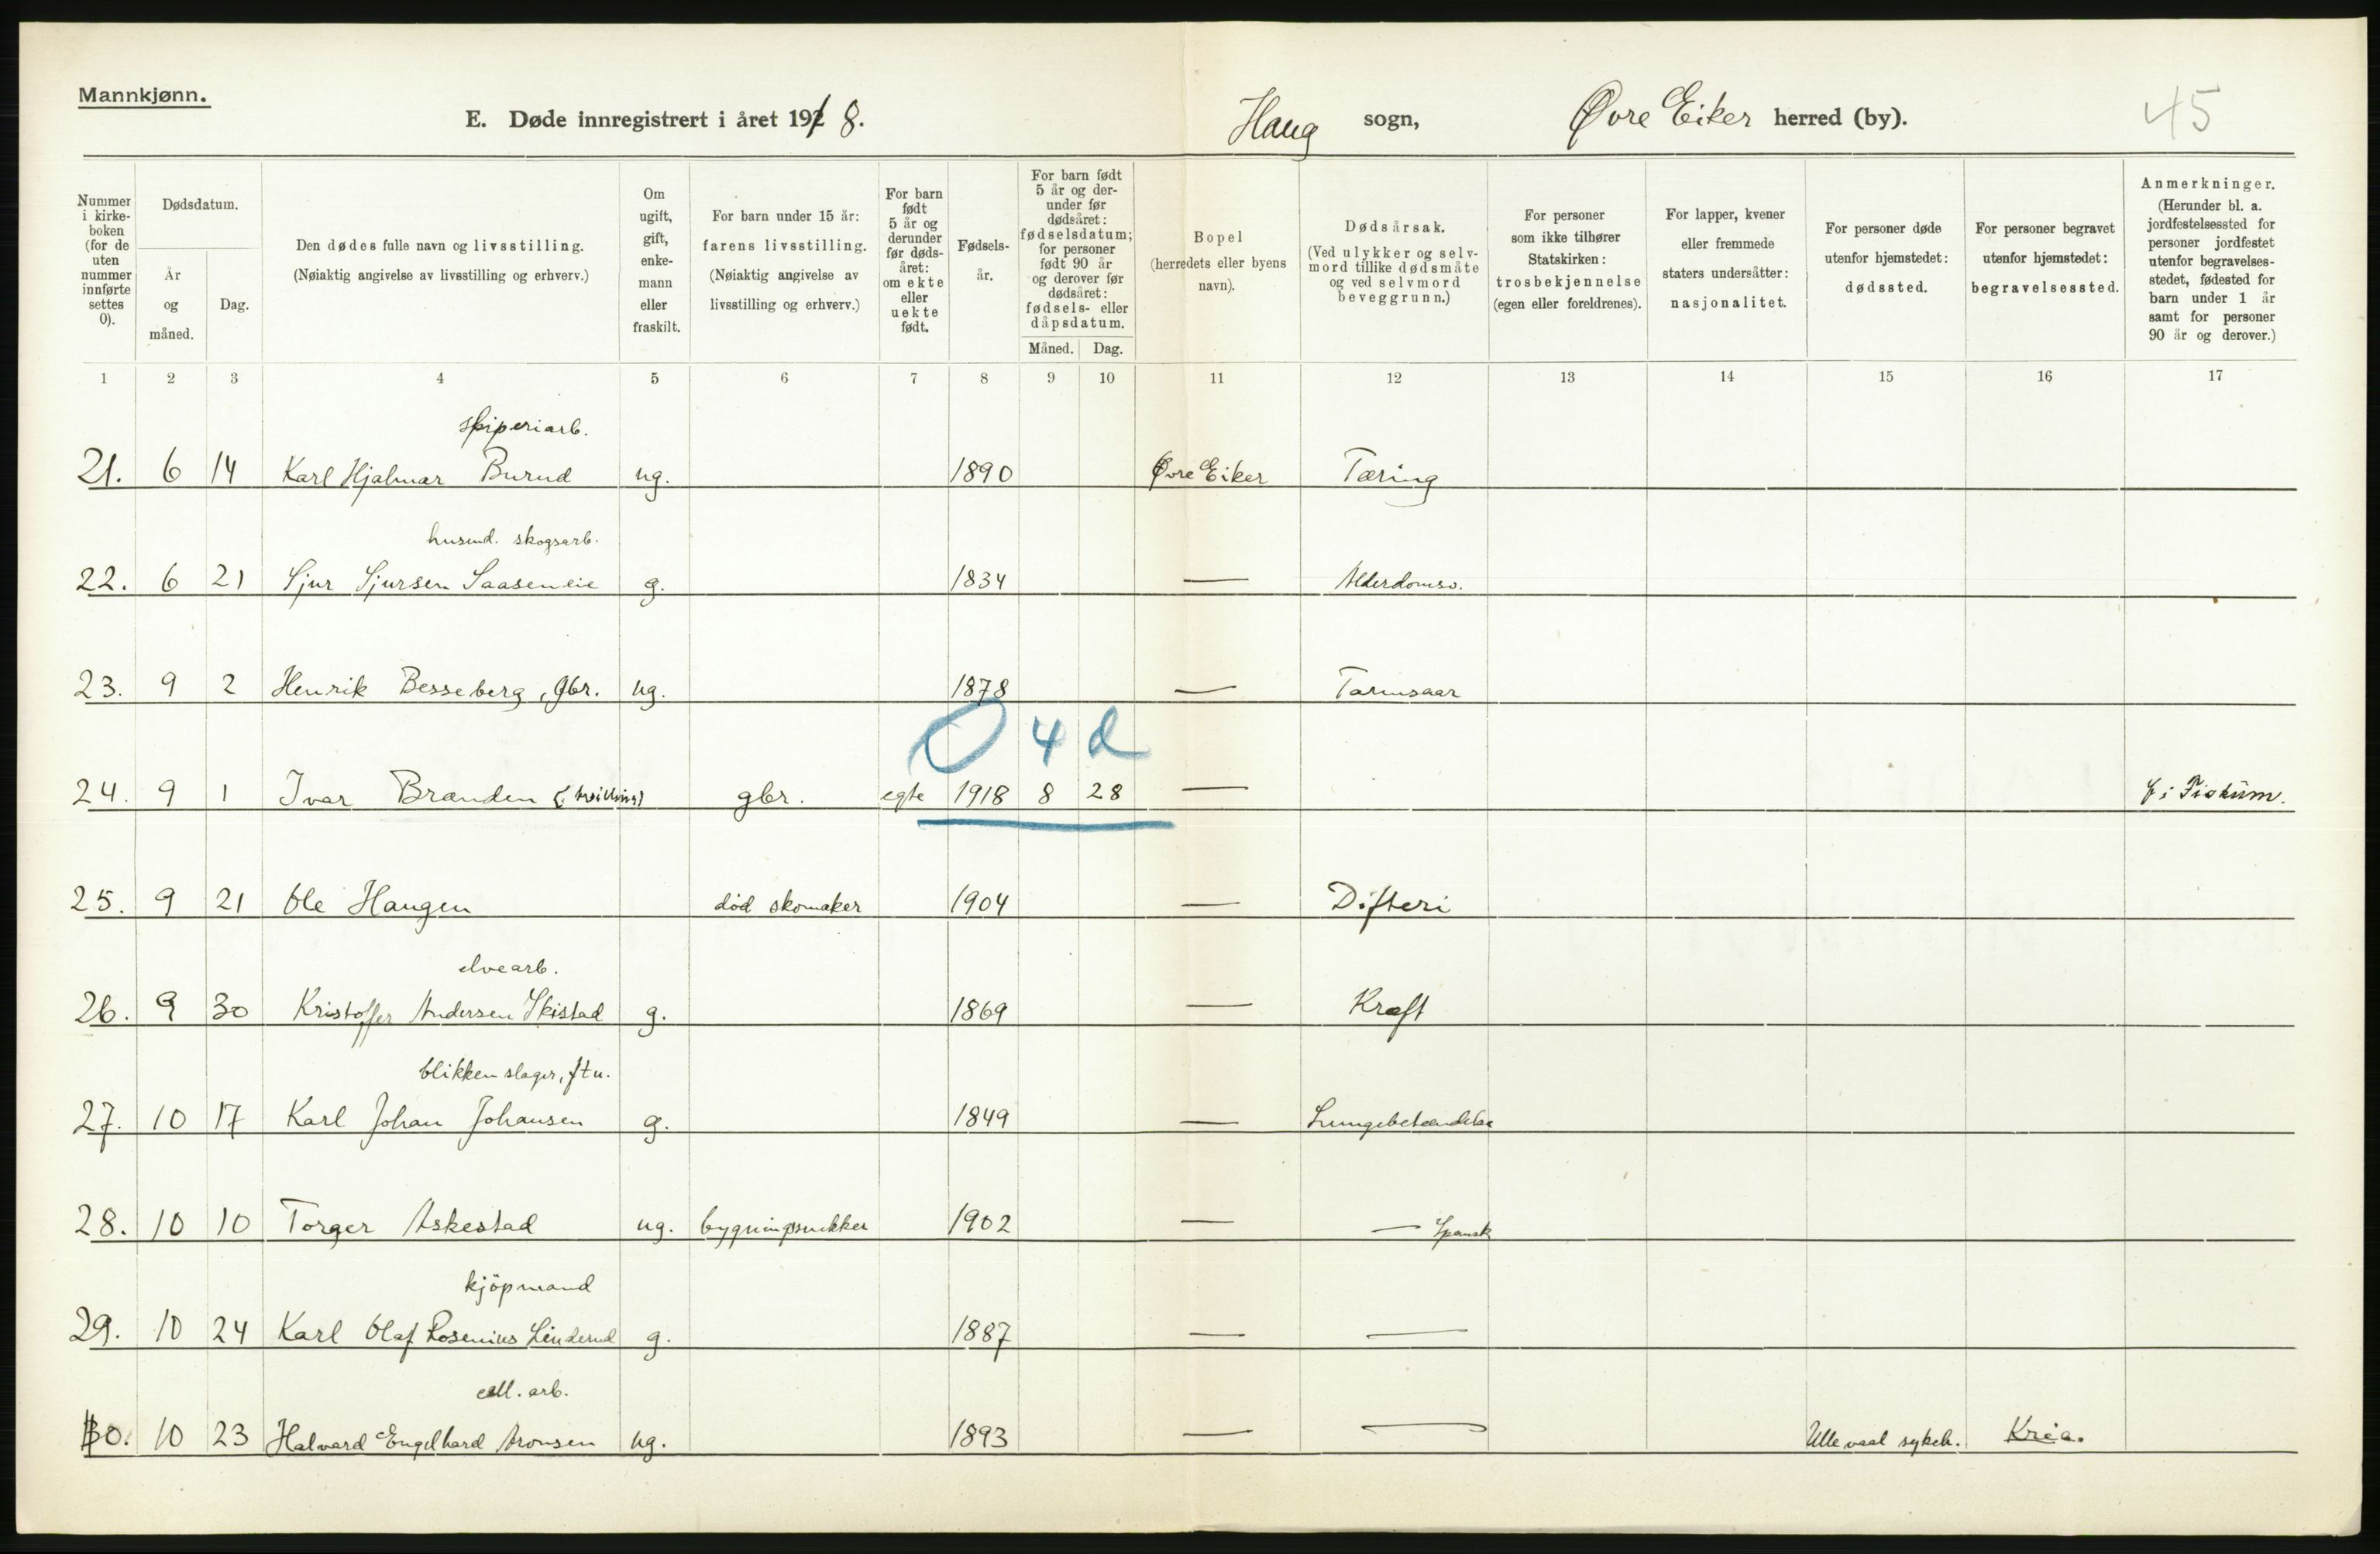 Mannkjønn.
E. Døde innregistrert i året 1918. Haug sogn, Øvre Eiker herred (by). 45
Nummer i kirkeboken (for de uten nummer innførte settes 0).
Dødsdatum.
År og måned.
Dag.
Den dødes fulle navn og livsstilling.
(Nøiaktig angivelse av livsstilling og erhverv.)
Om ugift, gift, enkemann eller fraskilt.
For barn under 15 år:
farens livsstilling.
(Nøiaktig angivelse av livsstilling og erhverv.)
For barn født 5 år og derunder før dødsåret: om ekte eller uekte født.
Fødselsår.
For barn født 5 år og derunder før dødsåret: fødselsdatum; for personer født 90 år og derover før dødsåret: fødsels- eller dåpsdatum.
Måned. Dag.
Bopel
(herredets eller byens navn).
Dødsårsak.
(Ved ulykker og selvmord tillike dødsmåte og ved selvmord beveggrunn.)
For personer som ikke tilhører Statskirken: trosbekjennelse (egen eller foreldrenes).
For lapper, kvener eller fremmede staters undersåtter: nasjonalitet.
For personer døde utenfor hjemstedet: dødssted.
For personer begravet utenfor hjemstedet: begravelsessted.
Anmerkninger.
(Herunder bl. a. jordfestelsessted for personer jordfestet utenfor begravelsesstedet, fødested for barn under 1 år samt for personer 90 år og derover.)
1 2 3 4 5 6 7 8 9 10 11 12 13 14 15 16 17
21. 6 14 Karl Hjalmar Burud ug. 1890 Øvre Eiker Tæring
husmd. skogsarb.
22. 6 21 Sjur Sjursen Saaseneie g. 1834 — Alderdomsv.
23. 9 2 Henrik Besseberg, gbr. ug. 1878 — Tarmsaar
0 4 d
24. 9 1 Ivar Branden (tvilling) gbr. egte 1918 8 28 — f. i Fiskum.
25. 9 21 Ole Haugen død skomaker 1904 — Difteri
elvearb.
26. 9 30 Kristoffer Andersen Skistad g. 1869 — Kræft
blikkenslager, ftu.
27. 10 17 Karl Johan Johansen g. 1849 — Lungebetændelse
28. 10 10 Torger Askestad ug. bygningssnekker 1902 — — Spansk
kjöpmand
29. 10 24 Karl Olaf Rosenius Linderud g. 1887 — —
cell. arb.
30. 10 23 Halvard Engelhard Aronsen ug. 1893 — — Ullevaal sykeh. Kria.